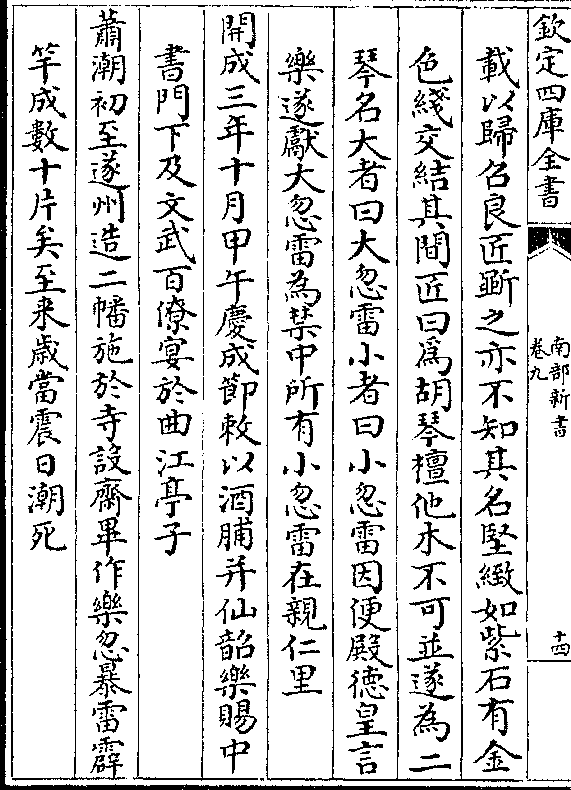 欽定四庫全書
南部新書
卷九
十四
載以歸召良匠斵之亦不知其名堅緻如紫石有金
色綫交結其間匠曰為胡琴檀他木不可並遂為二
琴名大者曰大忽雷小者曰小忽雷因便殿德皇言
樂遂獻大忽雷為禁中所有小忽雷在親仁里
開成三年十月甲午慶成節敕以酒脯并仙韶樂賜中
書門下及文武百僚宴於曲江亭子
蕭潮初至遂州造二幡施於寺設齋畢作樂忽暴雷霹
竿成數十片矣至来歲當震日潮死